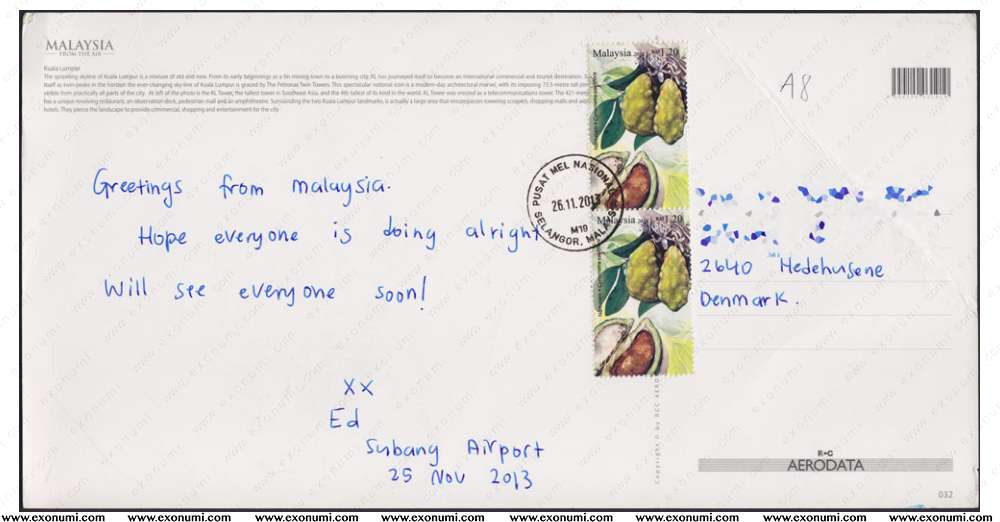 MALAYSIA
FROM THE AIR
Kuala Lumpur
The sprawling skyline of Kuala Lumpur is a mixture of old and new. From its early beginnings as a tin mining town to a booming city, KL has journeyed itself to become an international commercial and tourist destination.
itself as twin-peaks in the horizon the ever-changing sky-line of Kuala Lumpur is graced by The Petronas Twin Towers. This spectacular national icon is a modern-day architectural marvel, with its imposing 73.5-metre tall
visible from practically all parts of the city. At left of the photo is the KL Tower, the tallest tower in Southeast Asia, and the 4th tallest of its kind in the world. KL Tower was erected as a telecommunications tower. The 421-metre
has a unique revolving restaurant, an observation deck, pedestrian mall and an amphitheatre. Surrounding the two Kuala Lumpur landmarks, is actually a large area that encompasses towering scrapers, shopping malls and
hotels. They pierce the landscape to provide commercial, shopping and entertainment for the city
A8
Malaysia 1.20
Greetings from malaysia.
Hope everyone is doing alright
Will see everyone soon!
PUSAT MEL NASIONAL
26.11.2013
M10
SELANGOR, MALAYSIA
Malaysia 1.20
2640 Hedehusene
Denmark.
xx
Ed
Subang Airport
25 Nov 2013
AERODATA
032
www.exonumi.com www.exonumi.com www.exonumi.com www.exonumi.com www.exonumi.com www.exonumi.com www.exonumi.com www.exonumi.com